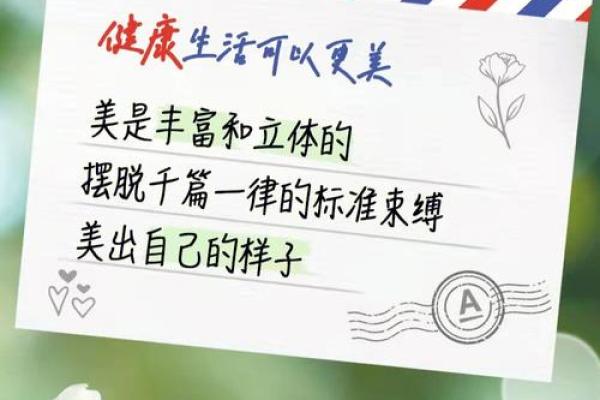 健康生活可以更美
美是丰富和立体的
摆脱千篇一律的标准束缚
美出自己的样子
A